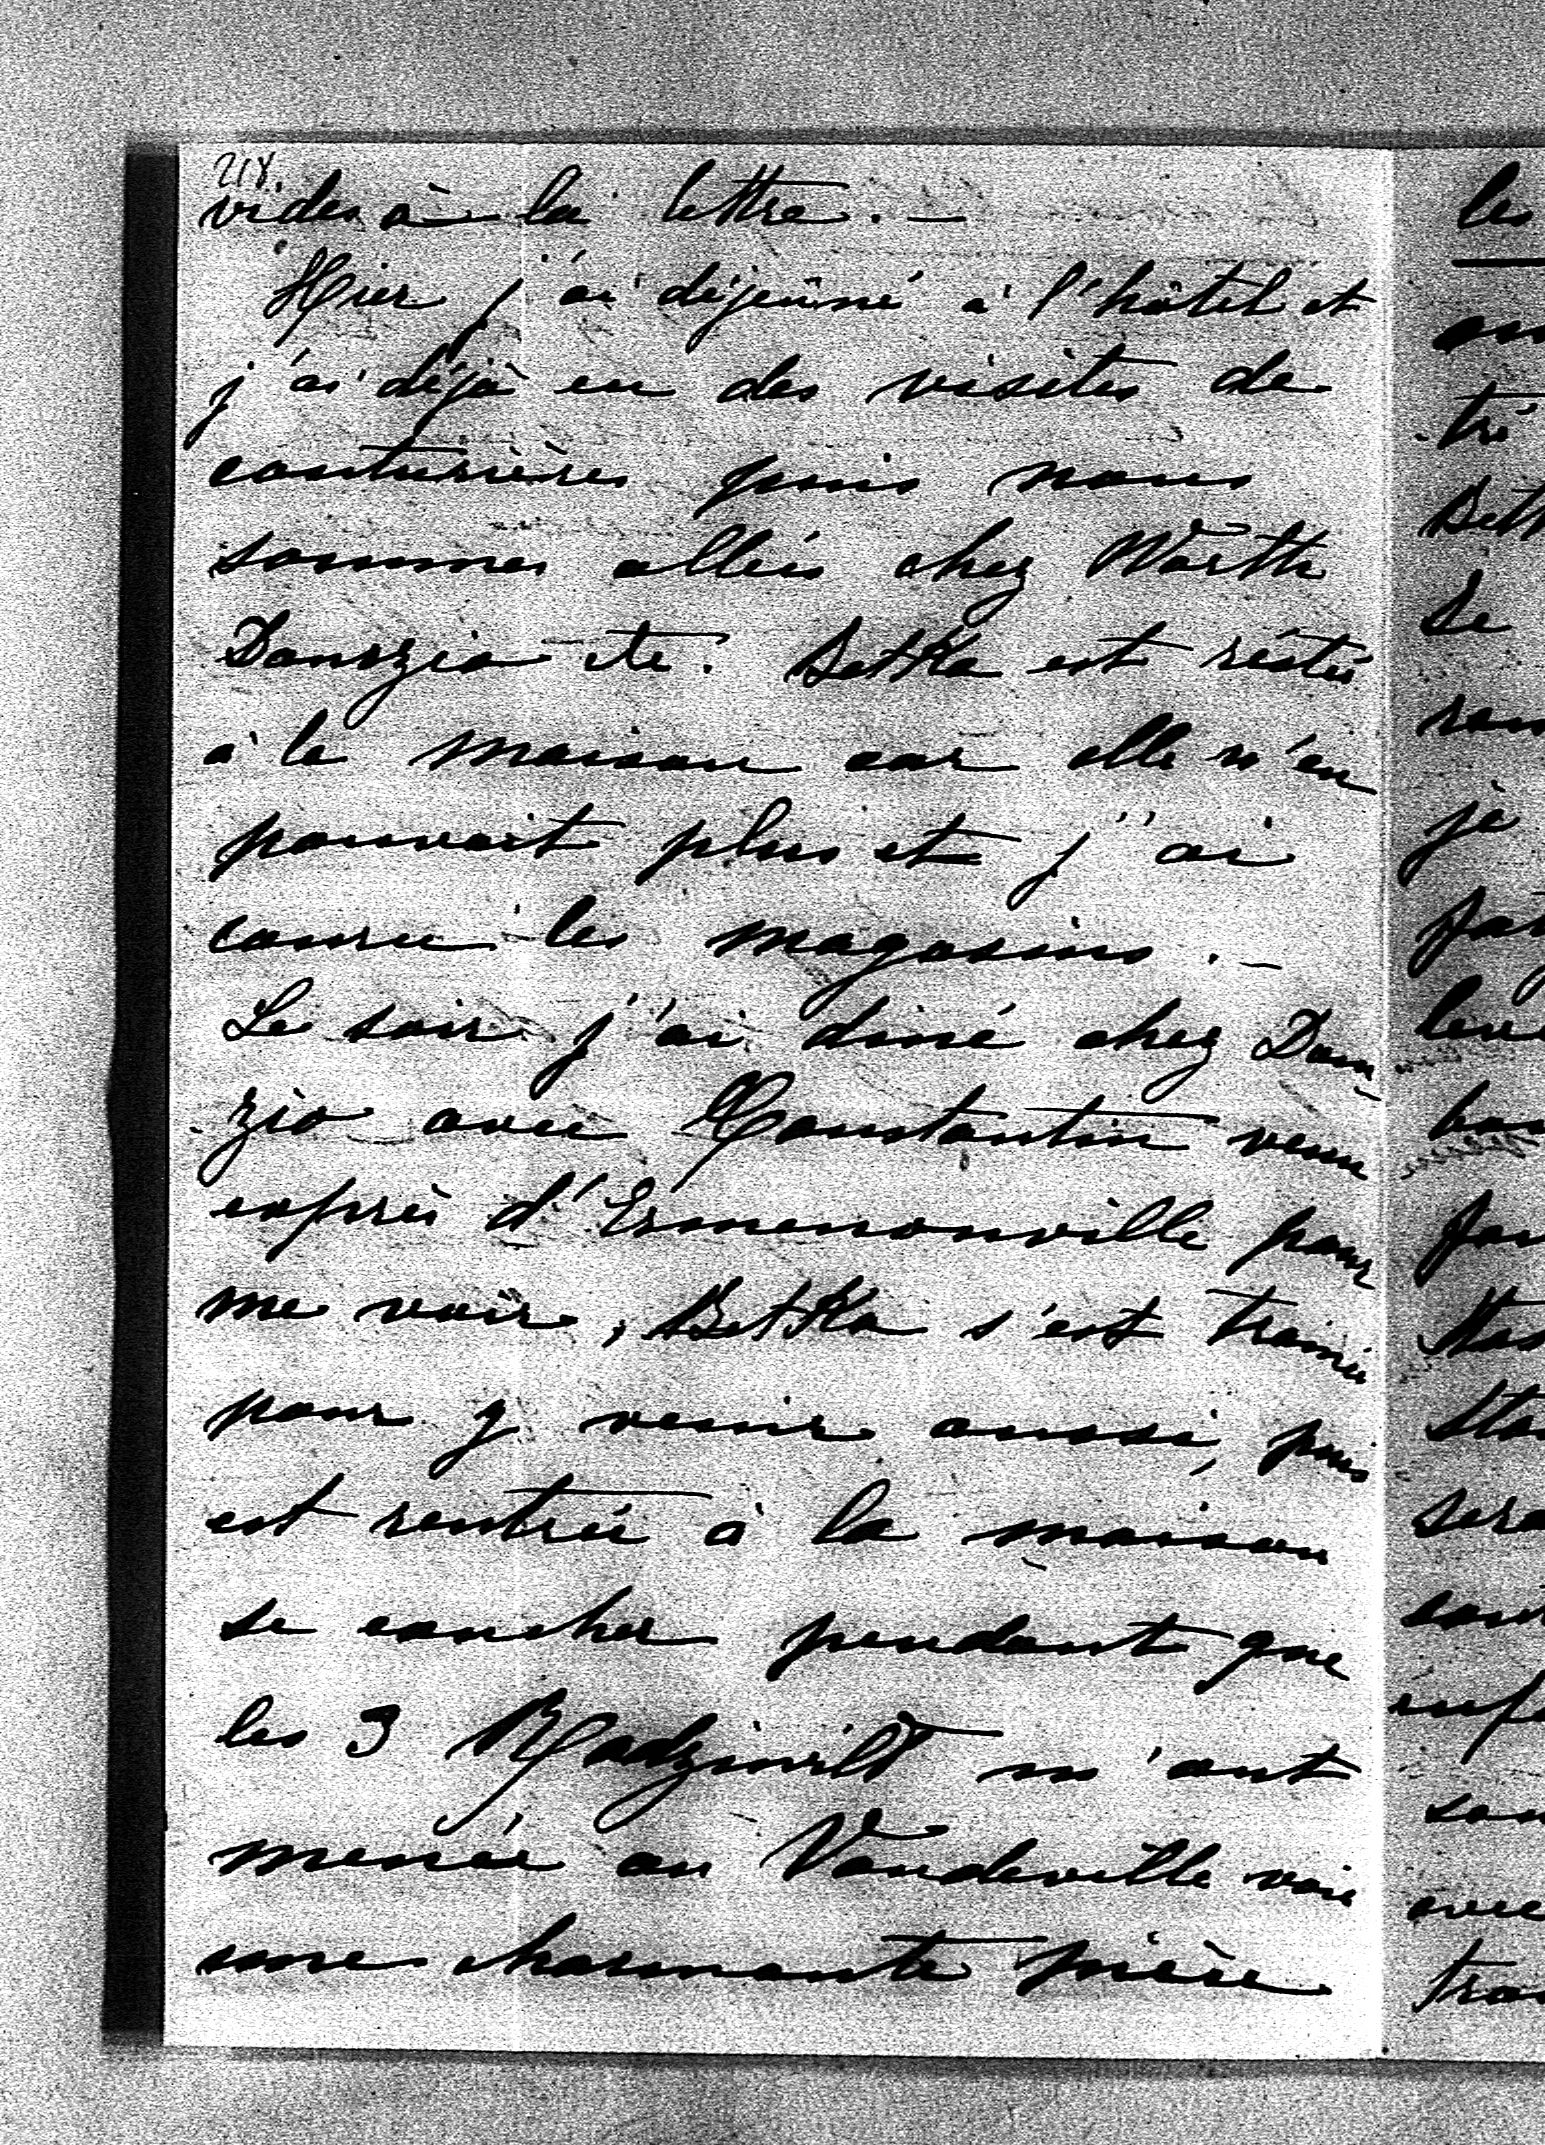 218.
vides à la lettre. —
Hier j'ai déjeûné à l'hôtel et
j'ai déjà eu des visites de
couturières puis nous
sommes allées chez Worth
Doudzia etc. BetKa est réstée
à la maison car elle n'en
pouvait plus et j'ai
couru les magasins. —
Le soir j'ai diné chez Dou-
zio avec Constantin venu
exprès d'Ermenonville pour
me voir, BetKa s'est trainée
pour y venir aussi, puis
est rentrée à la maison
se coucher pendant que
les 3 Radziwill m'ont
menée au Vaudeville voir
une charmante pièce
les
tré
Se
jà